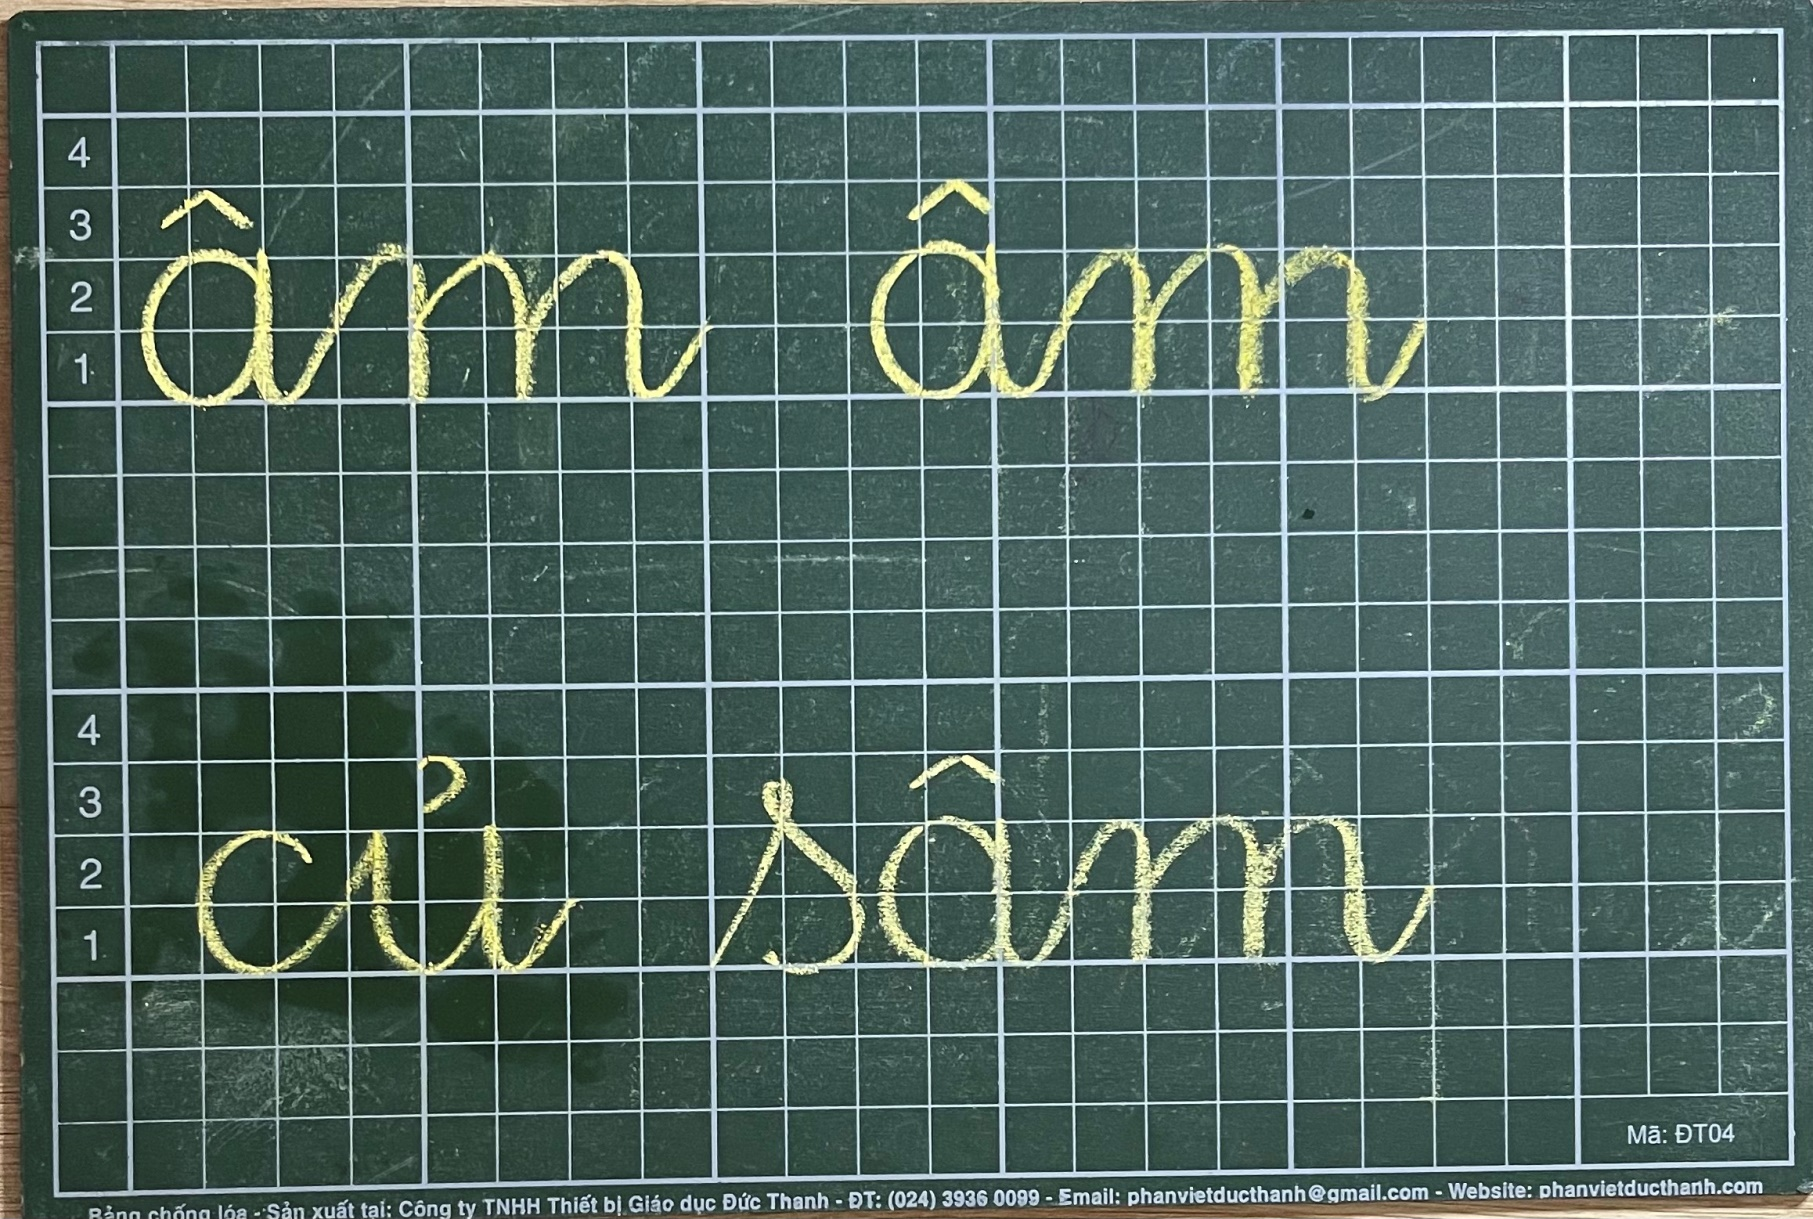 4
3
2
1
âm âm
4
3
2
1
củ sâm
Mã: ĐT04
Bảng chống lóa - Sản xuất tại: Công ty TNHH Thiết bị Giáo dục Đức Thanh - ĐT: (024) 3936 0099 - Email: phanvietducthanh@gmail.com - Website: phanvietducthanh.com